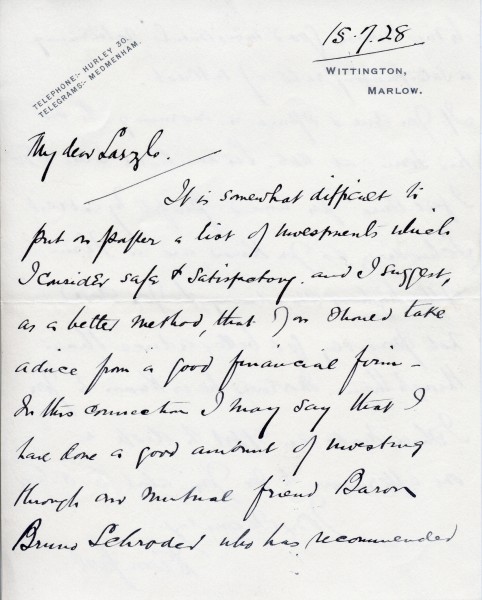 TELEPHONE:- HURLEY 30.
TELEGRAMS:- MEDMENHAM.
15.7.28
WITTINGTON,
MARLOW.
My dear Laszlo.
It is somewhat difficult to
put on paper a list of investments which
I consider safe & satisfactory. and I suggest,
as a better method, that you should take
advice from a good financial firm -
In this connection I may say that I
have done a good amount of investing
through our mutual friend Baron
Bruno Schroder who has recommended